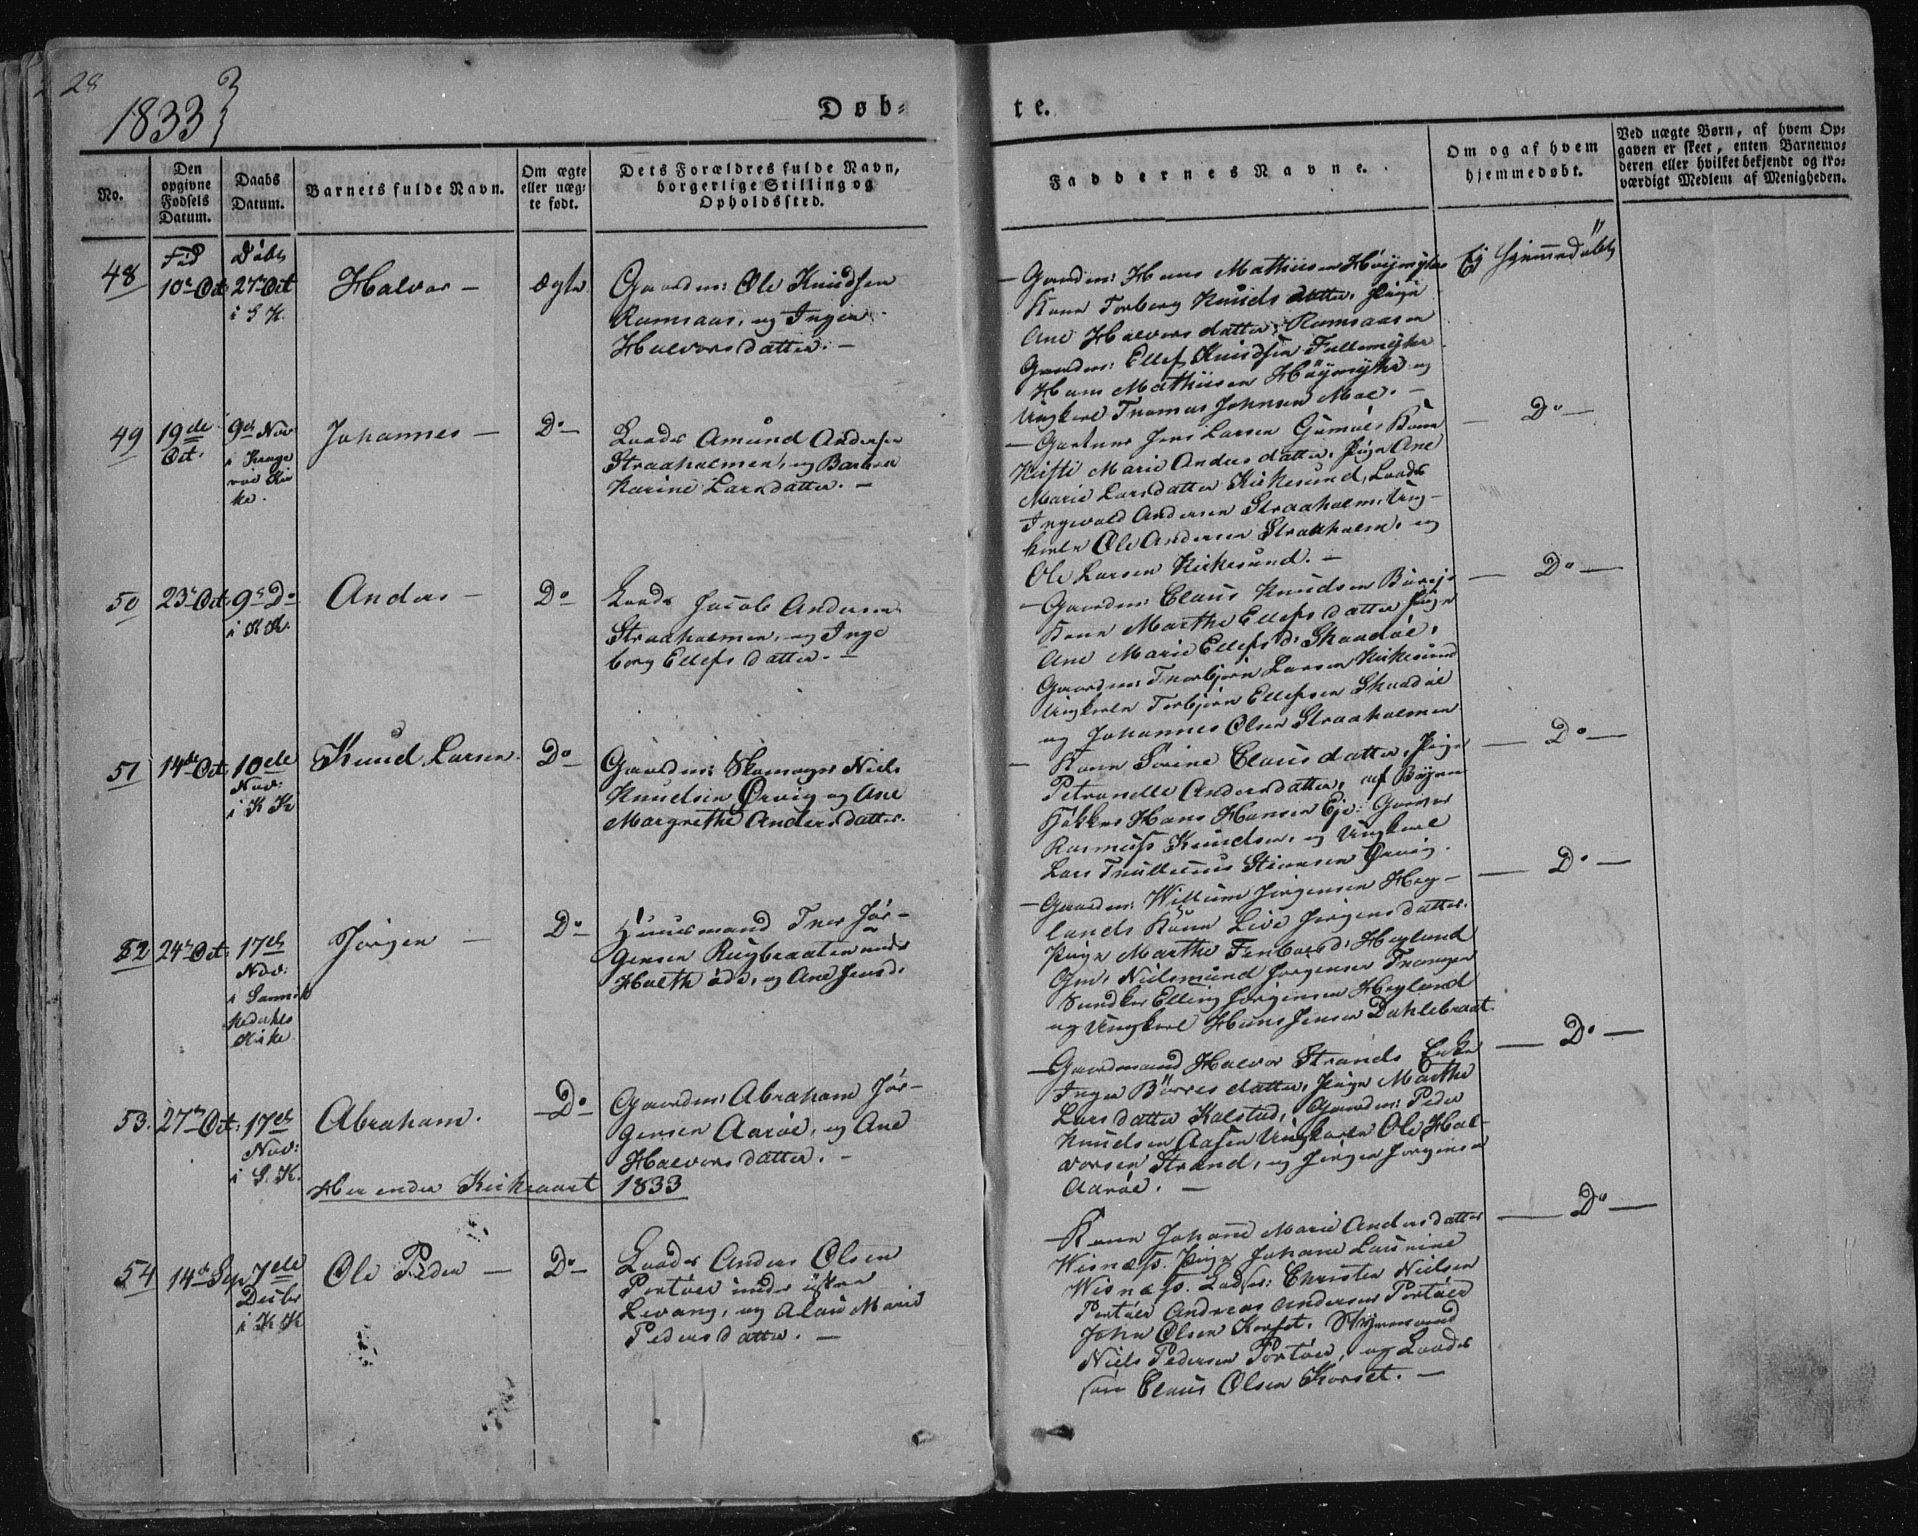 28
1833
Døb-
te.
No.
Den opgivne Fødsels Datum.
Daabs Datum.
Barnets fulde Navn.
Om ægte eller uæg-te født.
Dets Forældres fulde Navn, borgerlige Stilling og Opholdssted.
Faddernes Navne.
Om og af hvem hjemmedøbt.
Ved uægte Børn, af hvem Op-gaven er skeet, enten Barnemo-deren eller hvilket bekjendt og tro-værdigt Medlem af Menigheden.
48
Fød
10de Oct
Døbt
27de Oct
i S K.
Halvor —
Ægte
Gaardm: Ole Knudsen
Ramsaas, og Inger
Halvorsdatter. —
— Gaardm: Hans Mathiisen Høymyhr
Kone Torborg Knudsdatter, Pige
Ane Halvorsdatter, Ramsaasen
Gaardm: Ellef Knudsen
Hans Mathiisen Høymyhr og
Ungkarl Thomas Johnsen Moe. —
Ej Hjemmedøbt
49
19de
Oct.
9de Nov
i Krage
røe Kir
ke.
Johannes —
Do —
Laads Amund Andersen
Straaholmen, og Barbra
Karine Larsdatter. —
— Jens Larsen Gumøe Kone
Kisti Marie Andersdatter, Pige Ane
Marie Larsdatter Kirkesund, Laads
Ingevald Andersen Straaholm, Ung-
karle Ole Andersen Straaholm, og
Ole Larsen Kirkesund. —
— Do —
50
23de Oct
9de Do
i K K.
Anders —
Do
Laads Jacob Andersen
Straaholmen, og Inge
borg Ellefsdatter. —
— Gaardm: Claus Knudsen
Kone Marthe Ellefsdatter Pige
Ane Marie Ellefsd: Skaadøe,
Gaardm: Thorbjørn Larsen Kirkesund
Ungkarle Torbjørn Ellefsen Skaadøe
og Johannes Olsen Straaholmen
— Do —
51
14de Oct
10de
Nov.
i K K
Knud Larsen
Do
Gaardm: Skomager Niels
Knudsen Ørvig og Ane
Margrethe Andersdatter.
— Kone Sorine Clausdatter, Pige
Petronelle Andersdatter, af Byen
Høkker Hans Hansen Eje: Garver
Rasmus Knudsen, og Ungkarl
Lars Ørvig.
— Do —
52
24de Oct
17de
Nov:
i Sannik
kedahls
Kirke
Jørgen —
Do
Huusmand Iver Jør-
gensen Rugbraaten under
og Ane Jensd:
— Gaardm: Willum Jørgensen Heg-
lands Kone Live Jørgensdatter.
Pige Marthe Heglund
Gm: Nielsmund Jørgensen
Elling Jørgensen Heglund
og Ungkarl Hans Jensen Dahlebraat.
— Do —
53.
27de Oct:
17de
Nov:
i S. K.
Abraham.
— Do
Gaardm: Abraham Jør-
gensen Aarøe, og Ane
Halvorsdatter. —
— Gaardmand Halvor Strands Enke
Inger Børresdatter, Pige Marthe
Larsdatter Kalstad, Gaardm: Peder
Knudsen Aasen Ungkarle Ole Hal-
vorsen Strand, og Jørgen Jørgensen
Aarøe. —
— Do —
Her ender Kirkeaaret 1833
54
14de Sep
7de
Decbr
i K K
Ole Peder —
Do
Laads Anders Olsen
Portøer under østre
Levang, og Marie
Pedersdatter. —
— Kone Johane Marie Andersdatter
Wisnæss. Pige Johane Laurine
Wisnæss. Lads: Christen Nielsen
Portøer Andreas Andersen Portøer
John Olsen Korset. Styrmand
Niels Pedersen Portøer, og Laads
Claus Olsen Korset. —
— Do —